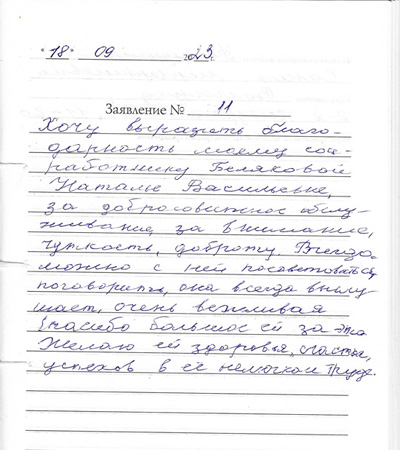 "18" 09 2023г.
Заявление № 11
Хочу выразить благо-
дарность моему соц-
работнику Беляковой
Наталье Васильевне,
за добросовестное обслу-
живание, за внимание,
чуткость, доброту. Всегда
можно с ней посоветоваться,
поговорить, она всегда выслу-
шает, очень вежливая
Спасибо большое ей за это
Желаю ей здоровья, счастья,
успехов в её нелёгком труде.